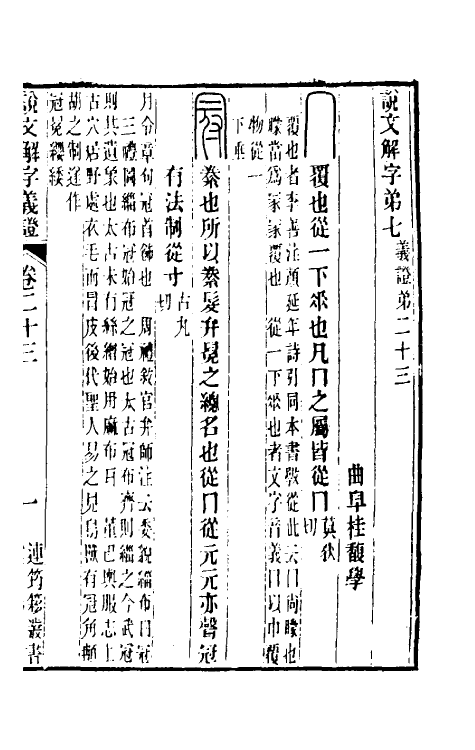 說文解字弟七　義證弟二十三
曲阜桂馥學
冂　覆也從一下𠂹也凡冂之屬皆從冂　莫狄切
覆也者李善注顏延年詩引同本書㲉從此云冂尚幪也
幪當爲冡冡覆也　從一下𠂹也者文字音義冂以巾覆
物從一
下垂
冠　豢也所以豢髮弁冕之總名也從冂從元元亦聲冠
有法制從寸　古丸切
月令章句冠首飾也　周禮敘官弁師注云委貌緇布曰冠
三禮圖緇布冠始冠之冠也太古冠布齊則緇之今武冠
則其遺象也太古未有絲繒始用麻布耳　董巴輿服志上
古穴居野處衣毛而冒皮後代聖人易之見鳥獸有冠角䫇
胡之制遂作
冠冕纓緌
說文解字義證　卷二十三　一　連筠簃叢書